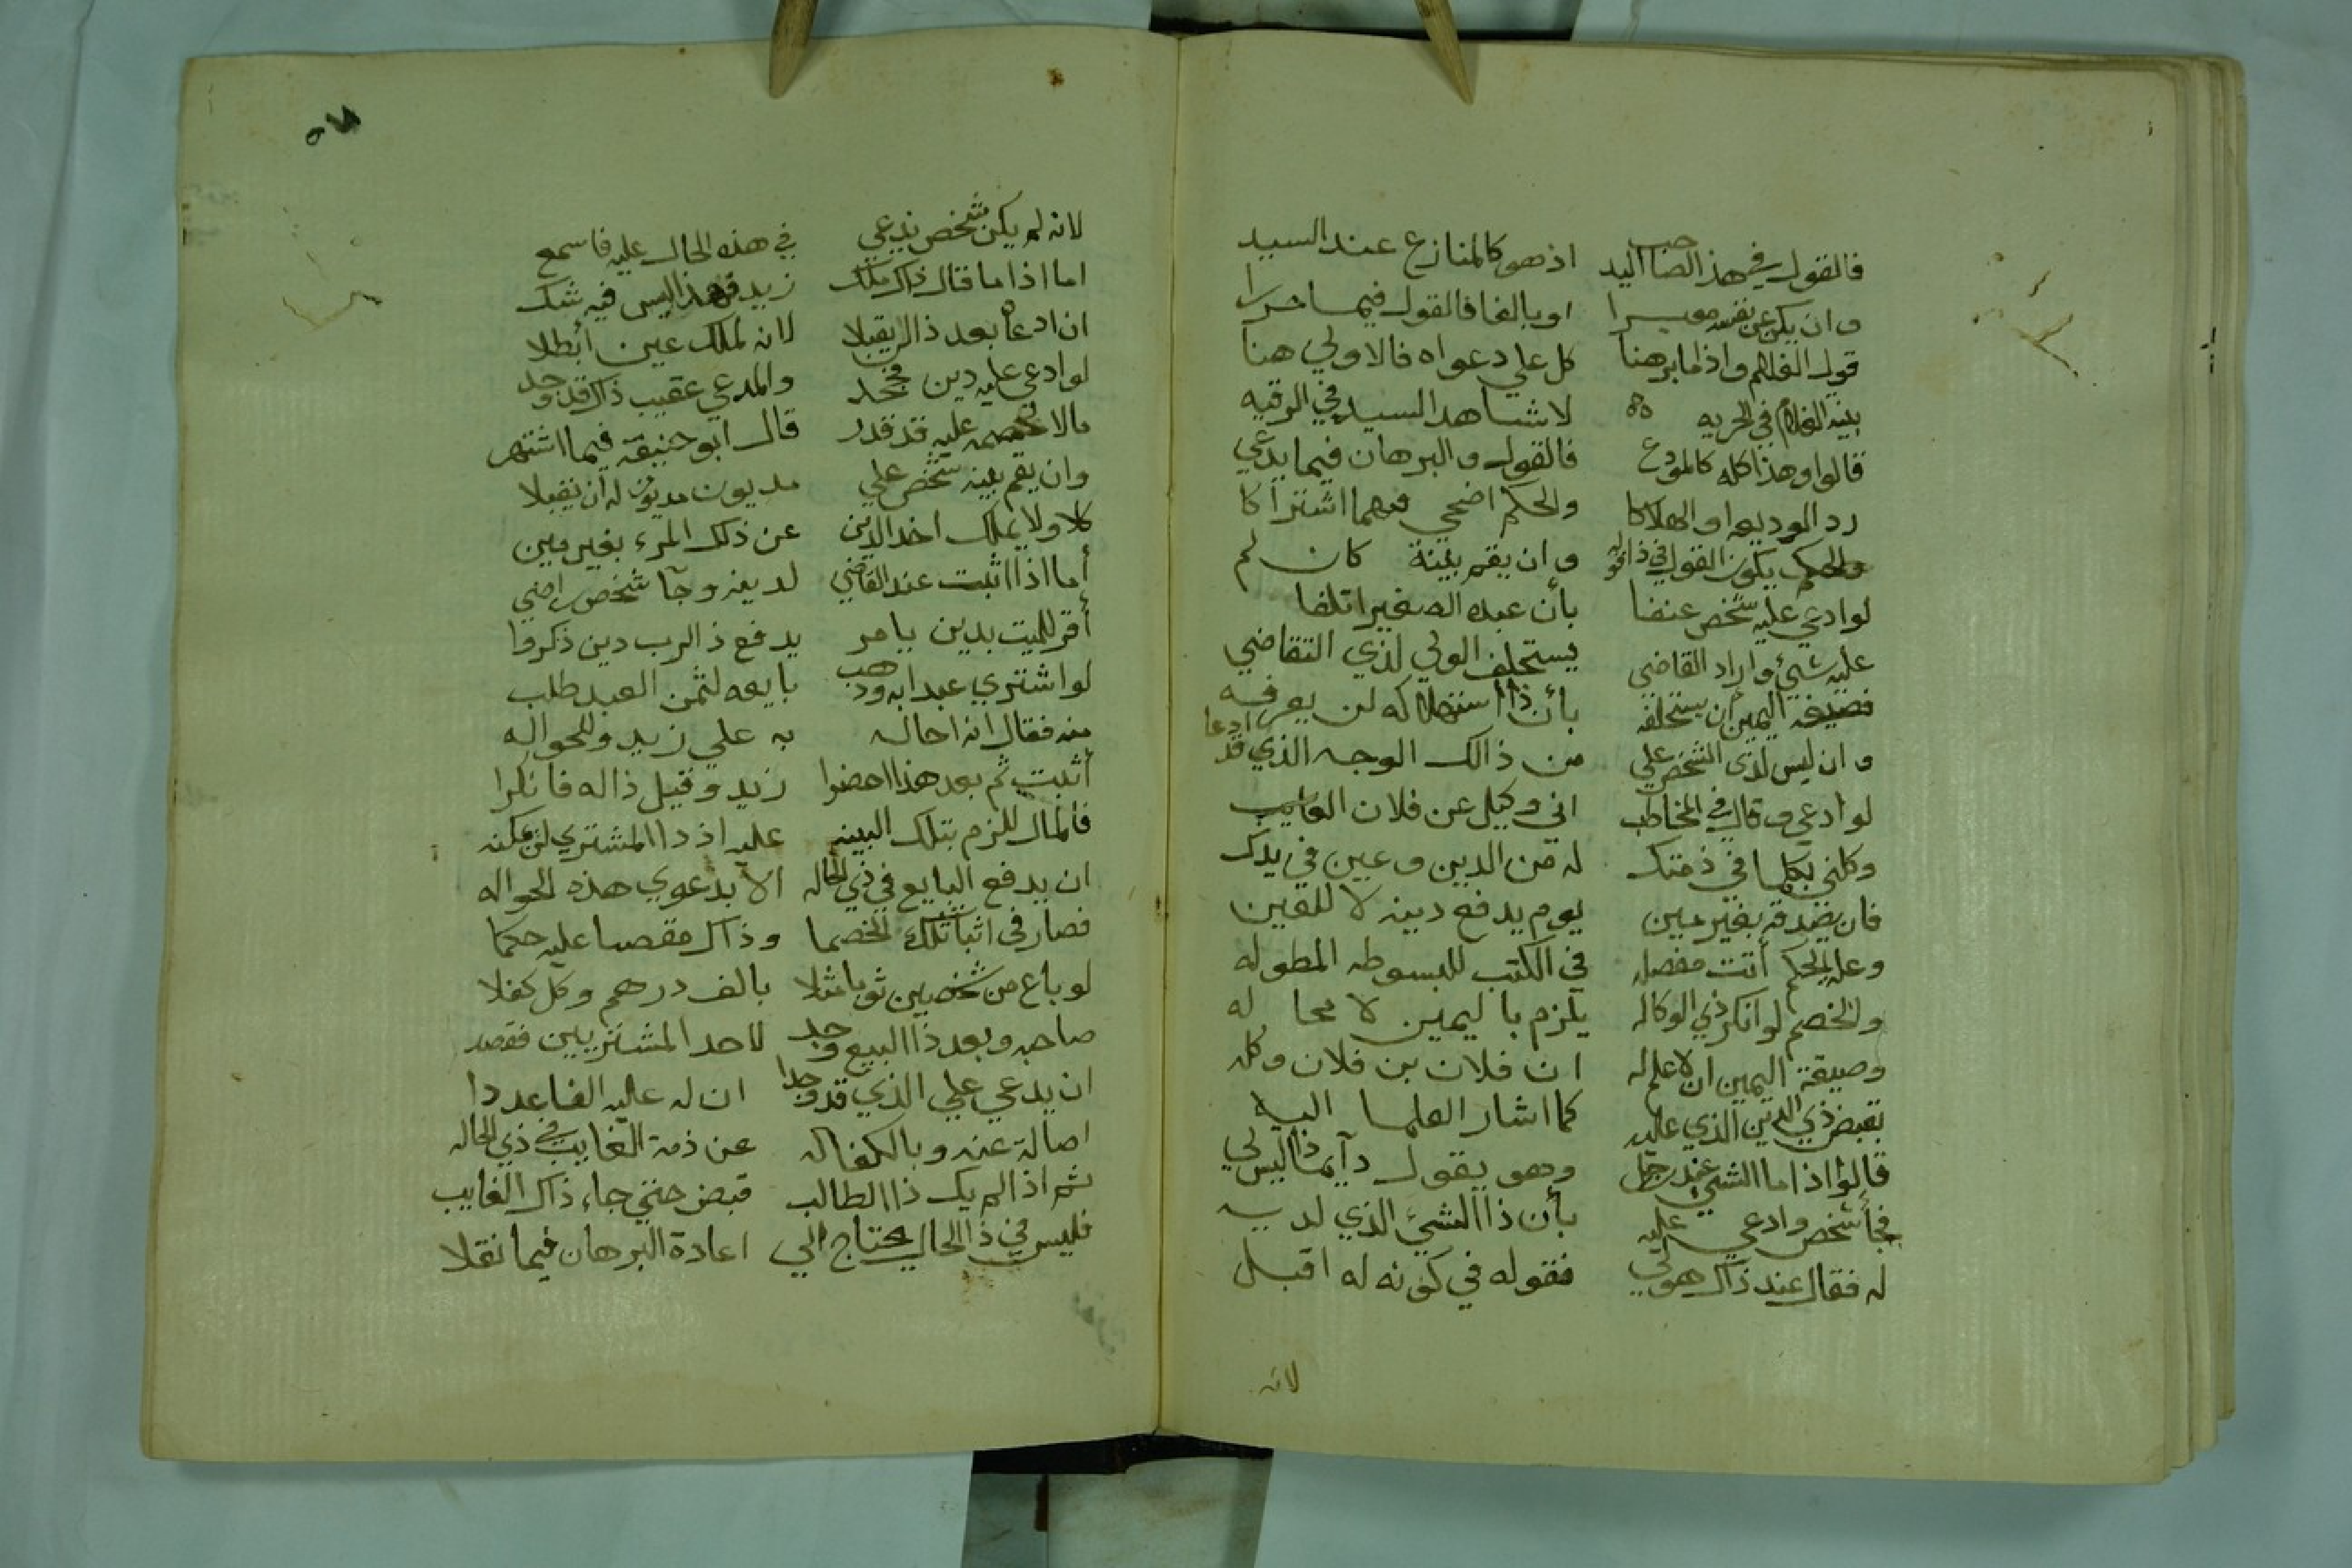 فالقول في هذا لصاحب اليد اذ هو كالمنازع عند السيد
وان يكن عن نفسه معبرا او بالغا فالقول فيما حررا
قول الغلام واذا ما برهنا كل علي دعواه فالاولي هنا
بينة الغلام في الحريه لا شاهد السيد في الرقيه
قالوا وهذا كله كالمودع فالقول والبرهان فيما يدعي
رد الوديعه او الهلاكا والحكم اضحي فيهما اشتراكا
والحكم يكون القول في ذا قوله وان يقم بينة كان لم
لو ادعي عليه شخص عنفا بأن عبده الصغير اتلفا
عليه شيئ واراد القاضي يستحلف الولي لذي التقاضي
فصيغة اليمين أن يستحلفه بأن ذا استهلاكه لن يعرفه
وان ليس لذي الشخص علي من ذالك الوجه الذي قد ادعا
لو ادعي وقال في المخاطب اني وكيل عن فلان الغايب
وكلني بكلما في ذمتك له من الدين وعين في يدك
فان يصدقه بغير مين يوم يدفع دينه لا للعين
وعلة الحكم أتت مفصله في الكتب المبسوطه المطوله
والخصم لو انكر ذي الوكاله يلزم باليمين لا محا له
وصيغة اليمين ان لا علم له ان فلان بن فلان وكله
بقبض ذي الدين الذي عليه كما اشار العلما اليه
قالوا اذا ما الشيئ عند رجل وهو يقول دآيما ذا ليس لي
فجأ شخص وادعي عليه بأن ذا الشيئ الذي لديه
له فقال عند ذاك هو لي فقوله في كونه له اقبل
لانه
٥٧
لانه لم يكن شخص يدعي في هذه الحال عليه فاسمع
اما اذا ما قال ذاك ملك زيد فهذا ليس فيه شك
ان ادعاه بعد ذا لن يقبلا لانه لملك عين أبطلا
لو ادعي عليه دين فجحد والمدعي عقيب ذاك قد وجد
مالا لخصمه عليه قد قدر قال ابو حنيفة فيما اشتهر
وان يقم بينة شخص علي مديون مديون له ان يقبلا
كلا ولا يملك اخذ الدين عن ذلك المرء بغير مين
أما اذا اثبت عند القاضي لدينه وجآ شخص راضي
أقر للميت بدين يامر يدفع ذا لرب دين ذكروا
لو اشتري عبدا به وذهب بايعه لثمن العبد طلب
منه فقال انه احاله به علي زيد وللحواله
أثبت ثم بعد هذا احضروا زيد وقيل ذا له فانكرا
فالمال للزم بتلك البينه عليه اذ ذا المشتري لن يمكنه
ان يدفع البايع في ذي الحاله الا بدعوي هذه الحواله
فصار في اثبات تلك الخصما وذاك مقصا عليه حكما
لو باع من شخصين ثوبا مثلا بالف درهم وكل كفلا
صاحبه وبعد ذا البيع وجد لاحد المشتريين فقصد
ان يدعي علي الذي قد وجدا ان له عليه الفا عددا
اصالة عنه وبالكفاله عن ذمة الغايب في ذي الحاله
ثم اذا لم يك ذا الطالب قبض حتي جاء ذاك الغايب
فليس في ذا الحال يحتاج الي اعادة البرهان فيما نقلا